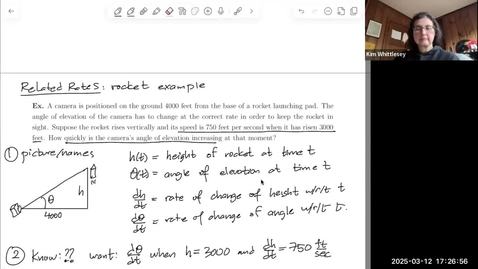 Kim Whittlesey
Related Rates: rocket example
Ex. A camera is positioned on the ground 4000 feet from the base of a rocket launching pad. The
angle of elevation of the camera has to change at the correct rate in order to keep the rocket in
sight. Suppose the rocket rises vertically and its speed is 750 feet per second when it has risen 3000
feet. How quickly is the camera's angle of elevation increasing at that moment?
① picture/names
h(t) = height of rocket at time t
θ(t) = angle of elevation at time t
dh/dt = rate of change of height w/r/t t
dθ/dt = rate of change of angle w/r/t t.
θ
h
4000
② Know: ?? want: dθ/dt when h = 3000 and dh/dt = 750 ft/sec
2025-03-12 17:26:56